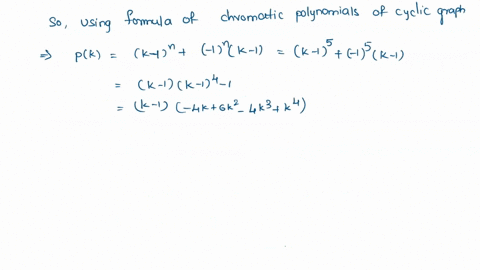 So, using formula of chromatic polynomials of cyclic graph
⇒ P(k) = (k-1)^n + (-1)^n (k-1) = (k-1)^5 + (-1)^5 (k-1)
= (k-1) (k-1)^4 - 1
= (k-1) (-4k + 6k^2 - 4k^3 + k^4)